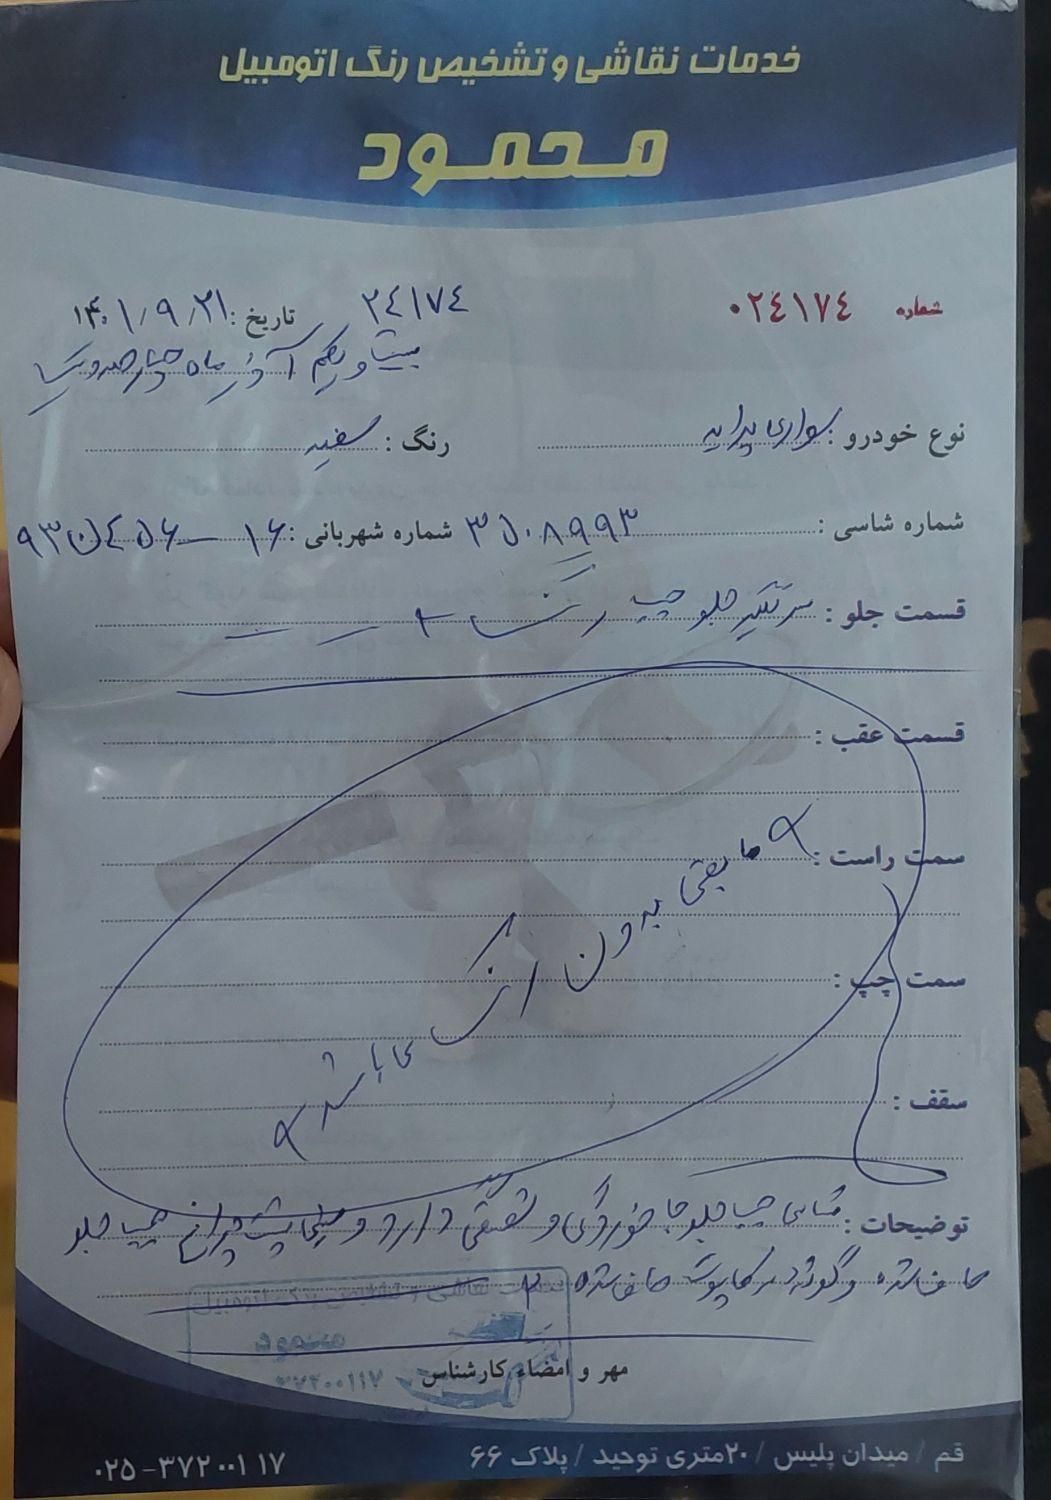 خدمات نقاشی و تشخیص رنگ اتومبیل
محمود
شماره ۰۲۴۱۷۴ ۲۴۱۷۴ تاریخ: ۱۴۰۱/۹/۲۱
بیست و یکم آذر ماه چهارصد و یک
نوع خودرو: سواری پراید رنگ: سفید
شماره شاسی: شماره شهربانی: ۱۶ — ۹۳ ن ۴۵۶
قسمت جلو: سر گلگیر جلو چپ رنگ
قسمت عقب:
سمت راست:
مابقی بدون رنگ می باشد
سمت چپ:
سقف:
توضیحات: شاسی چپ جلو جا خوردگی و دارد و سینی پشت چراغ چپ جلو
صافشده و گوشه در کاپوت صافشده
خدمات نقاشی و تشخیص رنگ اتومبیل
محمود
۳۷۲۰۰۱۱۷
مهر و امضاء کارشناس
قم / میدان پلیس / ۲۰متری توحید / پلاک ۶۶
۰۲۵-۳۷۲۰۰۱۱۷